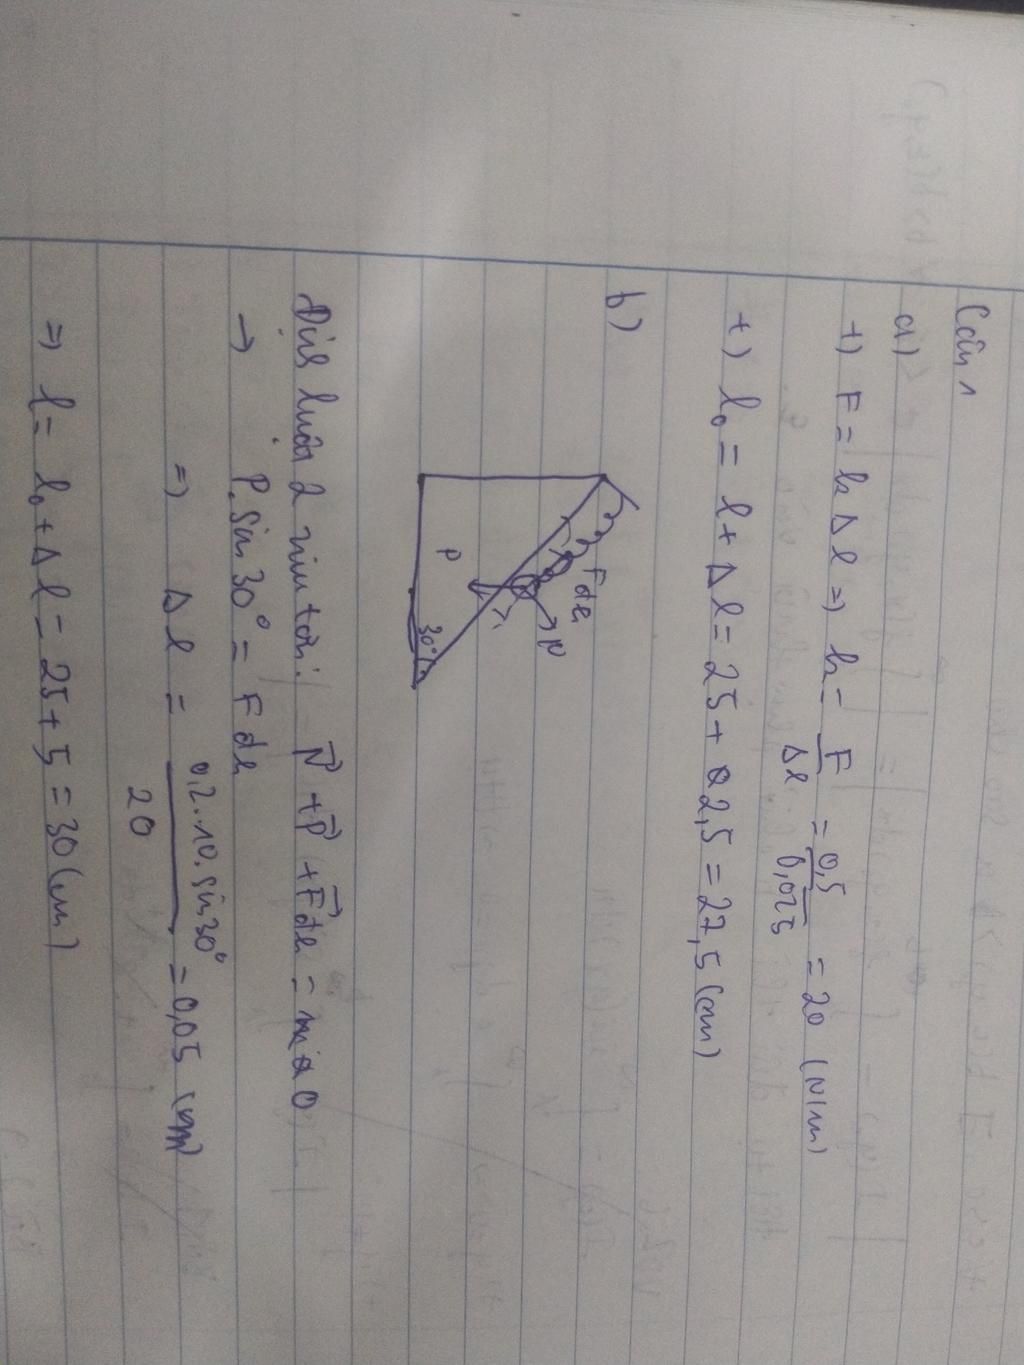 Câu 1
a)
+) F = k Δl => k = F/Δl = 0,5/0,025 = 20 (N/m)
+) l₀ = l + Δl = 25 + 2,5 = 27,5 (cm)
b)
Fđh
N
P
30°
Định luật 2 niuton: N⃗ + P⃗ + F⃗đh = 0
→ P.sin30° = Fđh
=> Δl = 0,2.10.sin30°/20 = 0,05 (m)
=> l = l₀ + Δl = 25 + 5 = 30 (cm)